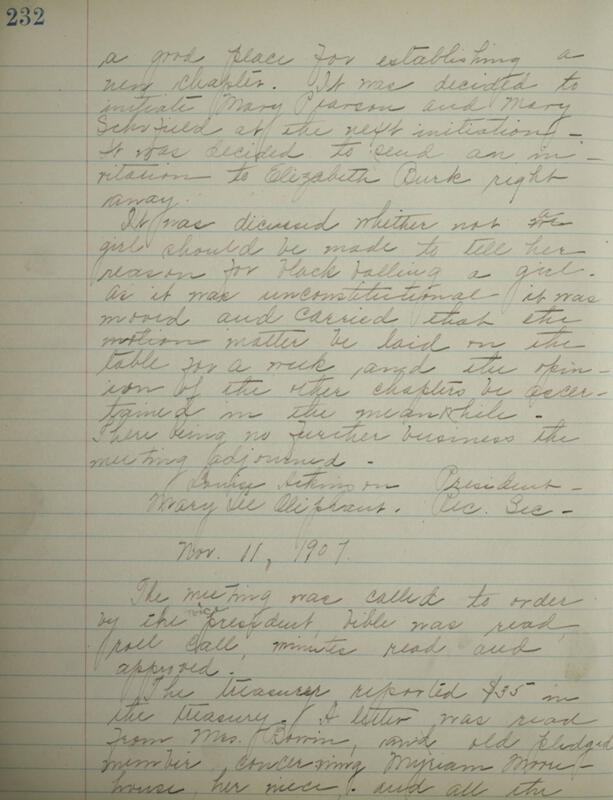 232
a good place for establishing a
new chapter. It was decided to
initiate Mary Pearson and Mary
Schofield at the next initiation -
It was decided to send an in -
vitation to Elizabeth Burk right
away.
It was dicussed whether not a
girl should be made to tell her
reason for black balling a girl.
As it was unconstitutional it was
moved and carried that the
motion matter be laid on the
table for a week, and the opin -
ion of the other chapters be ascer -
tained in the meanwhile -
There being no further business the
meeting adjourned -
Louise Atkinson President -
Mary Lee Oliphant. Rec. Sec -
Nov. 11, 1907.
The meeting was called to order
by the vice president, bible was read,
roll call, minutes read and
approved.
The treasurer reported $35 in
the treasury. A letter was read
from Mrs. Bowin, and old pledged
member, concerning Myriam Moore -
house, her niece. and all the